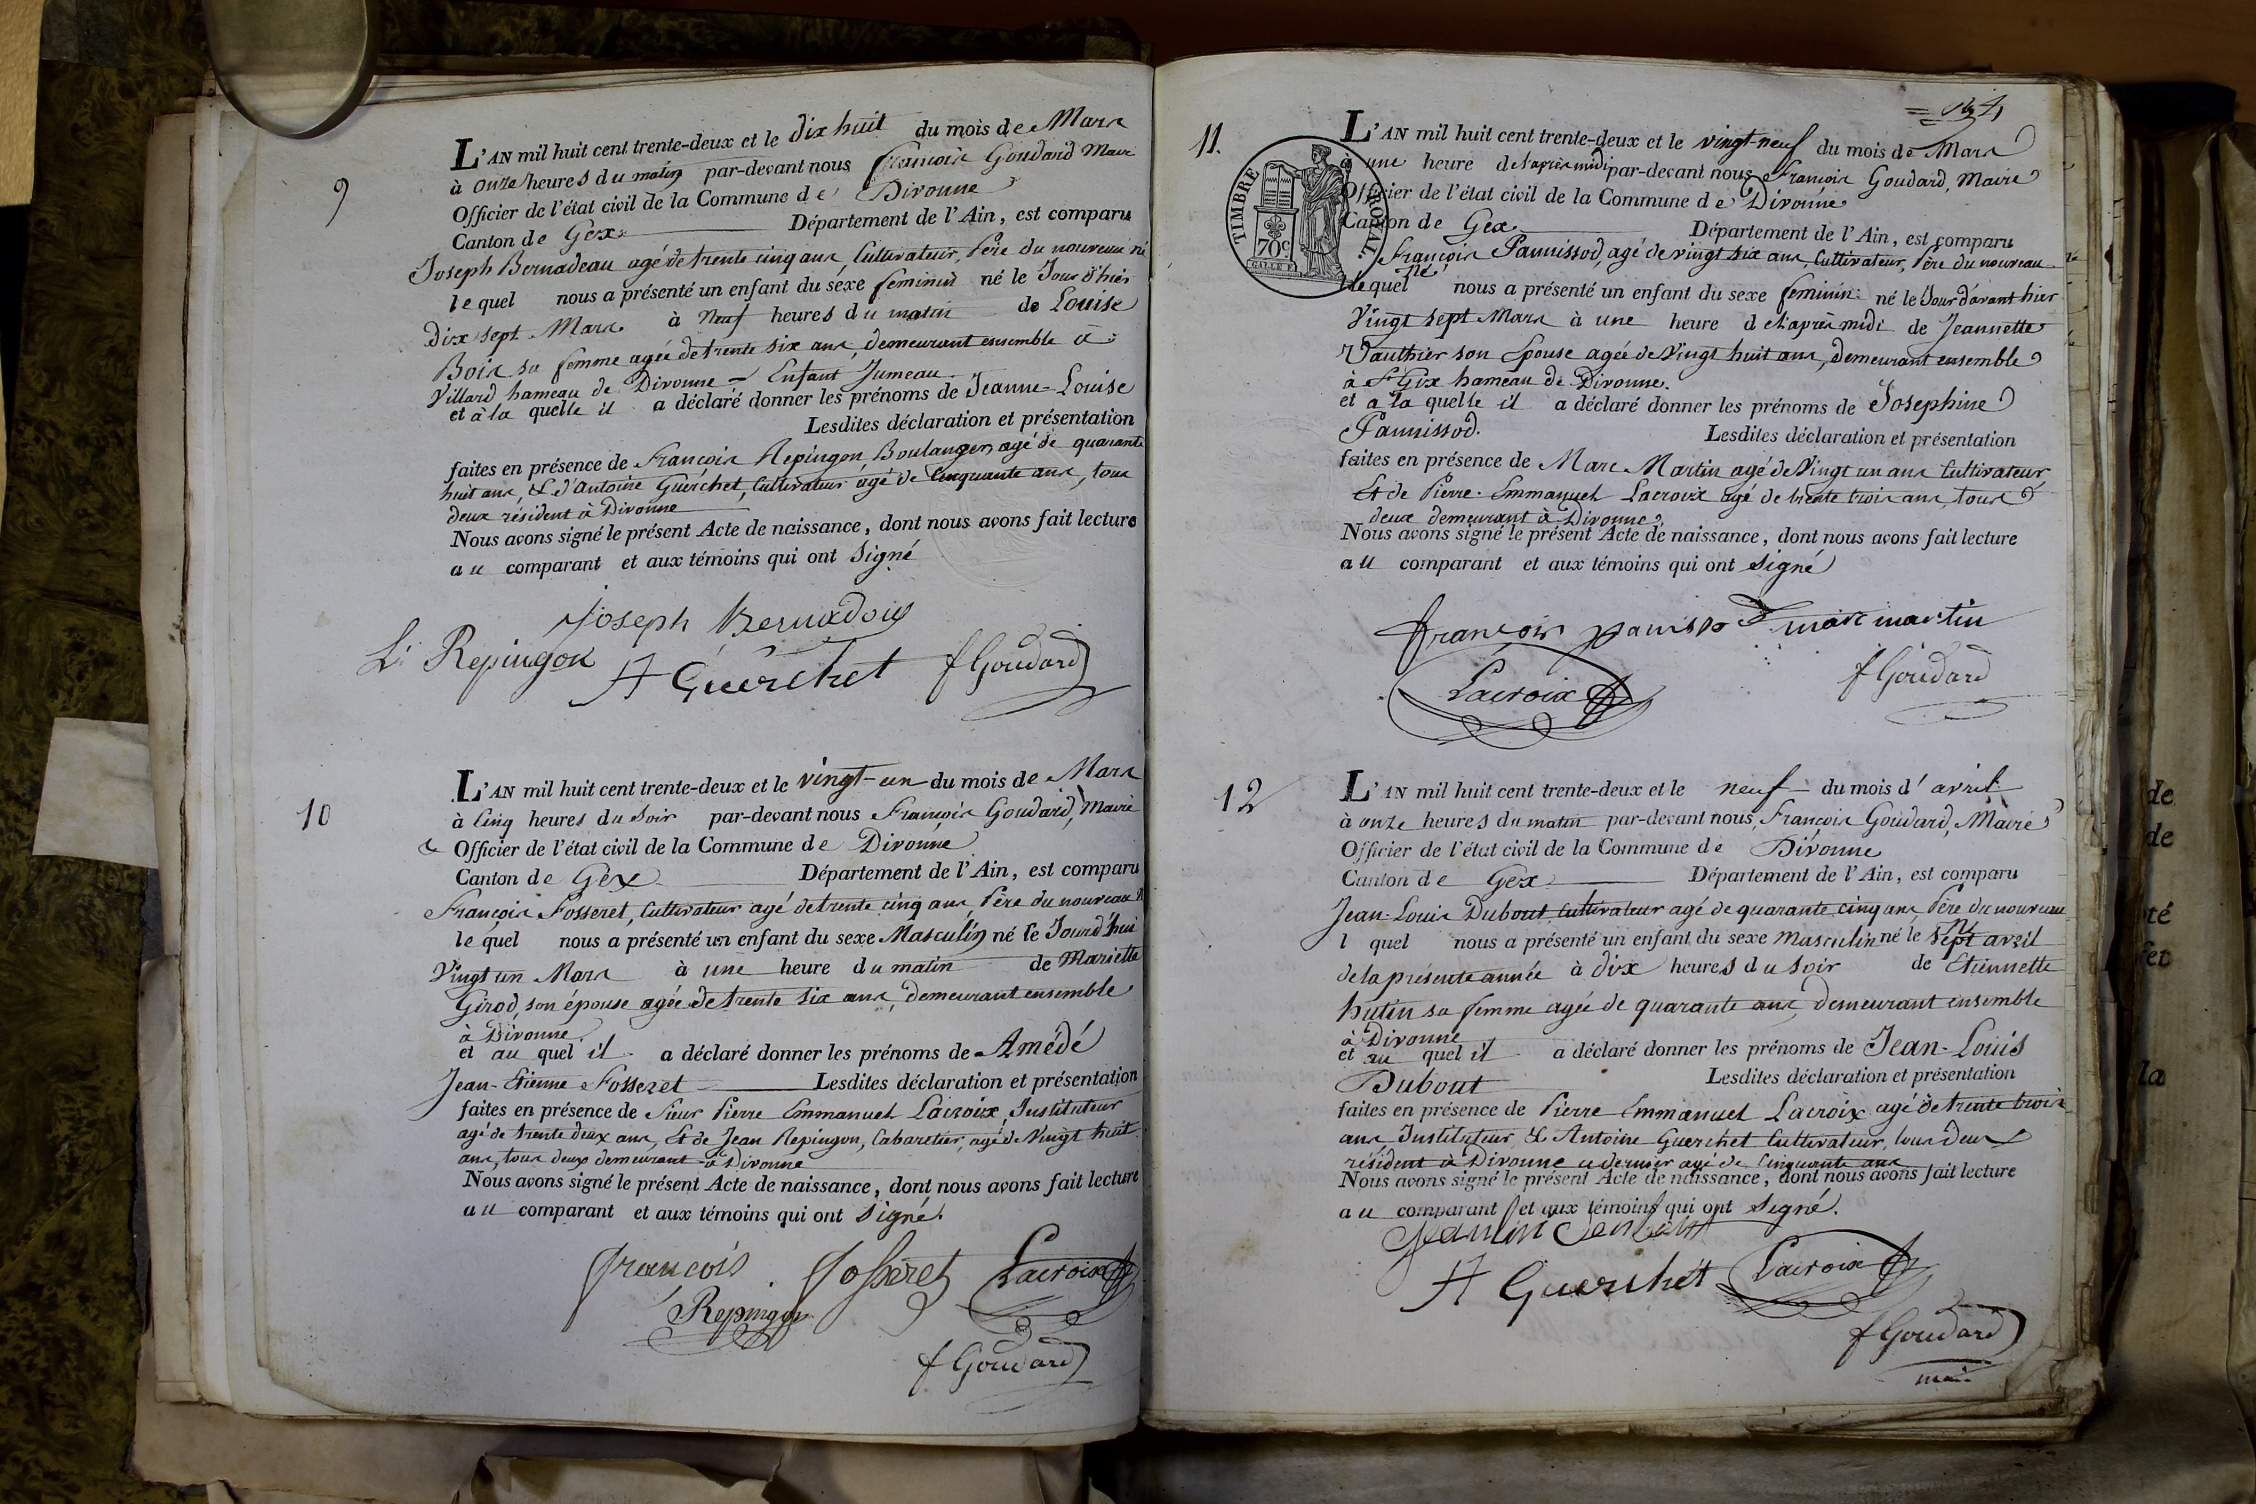 9
L'AN mil huit cent trente-deux et le dix huit du mois de Mars
à onze heures du matin par-devant nous François Goudard Maire
Officier de l'état civil de la Commune de Divonne
Canton de Gex Département de l'Ain, est comparu
Joseph Bernadeau agé de trente cinq ans, Cultivateur, Père du nouveau né
lequel nous a présenté un enfant du sexe feminin né le Jour d'hier
Dix sept Mars à Neuf heures du matin de Louise
Bois sa femme agée de trente six ans, demeurant ensemble à
Villard hameau de Divonne - Enfant Jumeau.
et à la quelle il a déclaré donner les prénoms de Jeanne-Louise
Lesdites déclaration et présentation
faites en présence de François Repingon Boulanger, agé de quarante
huit ans, & d'Antoine Guerchet, Cultivateur agé de Cinquante ans, tous
deux résident à Divonne
Nous avons signé le présent Acte de naissance, dont nous avons fait lecture
au comparant et aux témoins qui ont signé
Joseph Bernadou
Repingon A Guerchet fGoudard
10
L'AN mil huit cent trente-deux et le vingt-un du mois de Mars
à Cinq heures du soir par-devant nous François Goudard, Maire
Officier de l'état civil de la Commune de Divonne
Canton de Gex Département de l'Ain, est comparu
François Fosseret, Cultivateur agé de trente cinq ans, Père du nouveau
lequel nous a présenté un enfant du sexe Masculin né le Jourd'hui
Vingt un Mars à une heure du matin de Mariette
Girod, son épouse agée de trente six ans, demeurant ensemble
à Divonne.
et au quel il a déclaré donner les prénoms de Amédé
Jean-Etienne Fosseret Lesdites déclaration et présentation
faites en présence de Sieur Pierre Emmanuel Lacroix, Instituteur
agé de trente deux ans, Et de Jean Repingon, Cabaretier, agé de Vingt huit
ans, tous deux demeurant à Divonne
Nous avons signé le présent Acte de naissance, dont nous avons fait lecture
au comparant et aux témoins qui ont signé.
François Fosseret Lacroix
Repingon
fGoudard
11.
TIMBRE ROYAL
70c
L'AN mil huit cent trente-deux et le vingt-neuf du mois de Mars
à une heure de l'après midi par-devant nous François Goudard, Maire
Officier de l'état civil de la Commune de Divonne
Canton de Gex Département de l'Ain, est comparu
François Pannissod, agé de vingt six ans, Cultivateur, Père du nouveau
né
lequel nous a présenté un enfant du sexe feminin né le Jour d'avant hier
Vingt sept Mars à une heure de l'après midi de Jeannette
Vauthier son Epouse agée de Vingt huit ans, demeurant ensemble
à St Gix hameau de Divonne.
et à la quelle il a déclaré donner les prénoms de Josephine
Pannissod. Lesdites déclaration et présentation
faites en présence de Marc Martin agé de Vingt un ans Cultivateur,
Et de Pierre Emmanuel Lacroix agé de trente trois ans, tous
deux demeurant à Divonne.
Nous avons signé le présent Acte de naissance, dont nous avons fait lecture
au comparant et aux témoins qui ont signé
françois panisso marc martin
Lacroix fGoudard
12
L'AN mil huit cent trente-deux et le neuf du mois d'avril
à onze heures du matin par-devant nous, François Goudard, Maire
Officier de l'état civil de la Commune de Divonne
Canton de Gex Département de l'Ain, est comparu
Jean-Louis Dubout, Cultivateur agé de quarante cinq ans Père du nouveau
né
l quel nous a présenté un enfant du sexe masculin né le sept avril
de la présente année à dix heures du soir de Etiennette
hutin sa femme agée de quarante ans, demeurant ensemble
à Divonne
et au quel il a déclaré donner les prénoms de Jean-Louis
Dubout Lesdites déclaration et présentation
faites en présence de Pierre Emmanuel Lacroix agé de trente trois
ans, Instituteur, & Antoine Guerchet Cultivateur, tous deux
résident à Divonne ce dernier agé de Cinquante ans
Nous avons signé le présent Acte de naissance, dont nous avons fait lecture
au comparant et aux témoins qui ont signé.
A Guerchet Lacroix
fGoudard
de
de
té
et
la